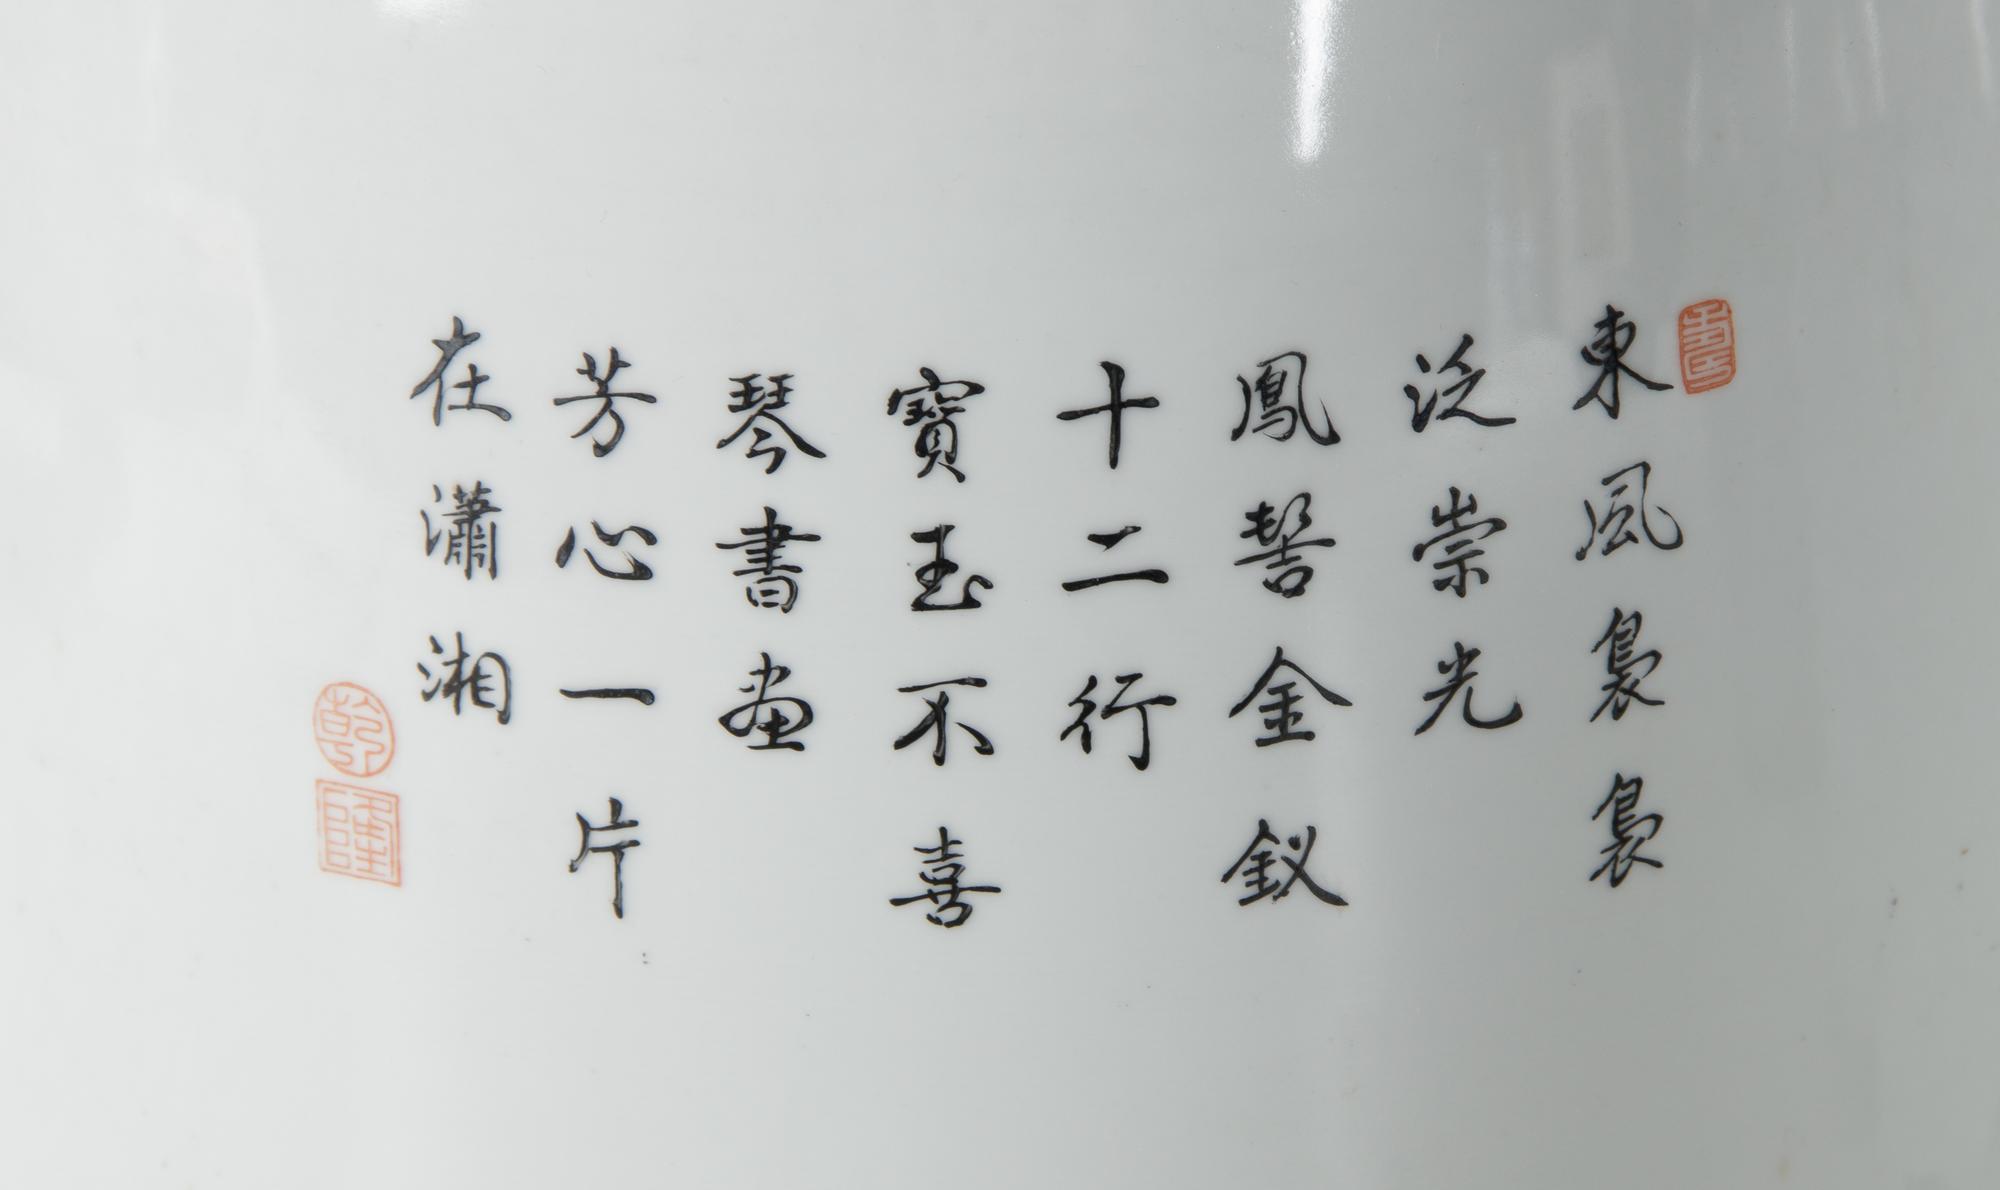 東風裊裊
泛崇光
鳳髻金釵
十二行
寶玉不喜
琴書畫
芳心一片
在瀟湘
乾
隆